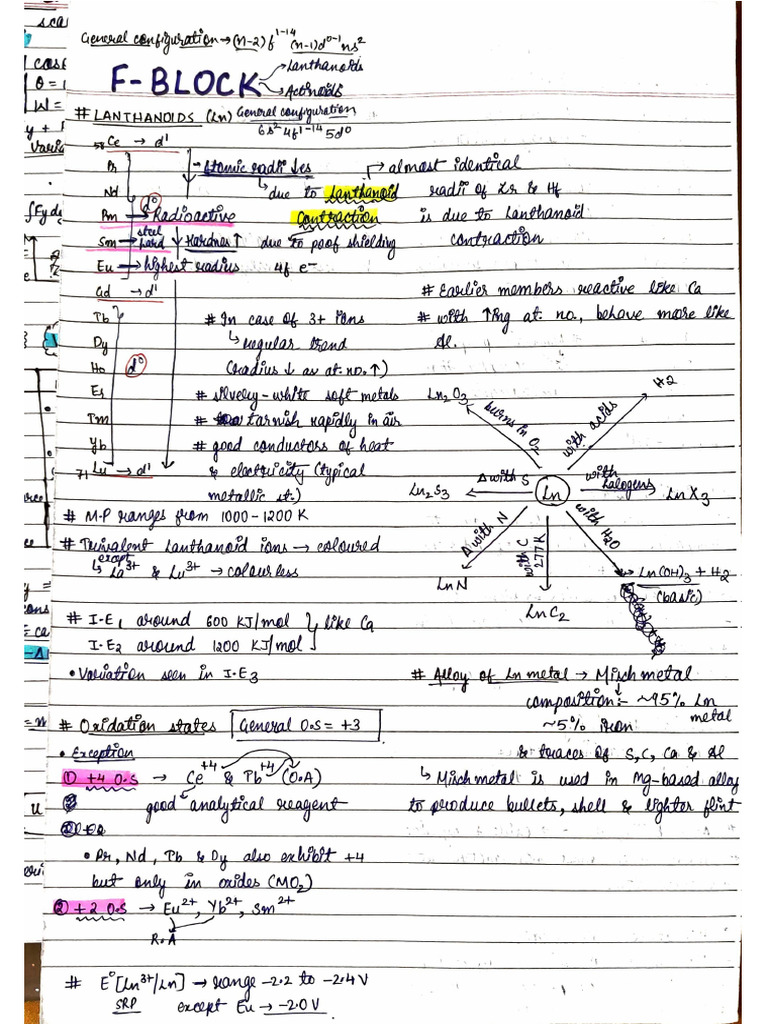 General configuration → (n-2)f¹⁻¹⁴ (n-1)d⁰⁻¹ ns²
F-BLOCK
Lanthanoids
Actinoids
# LANTHANOIDS (Ln) General configuration
6s² 4f¹⁻¹⁴ 5d⁰
58 Ce → d¹
Pr
Nd
d⁰
Pm → Radioactive
Sm → steel hard
Eu → highest radius
Gd → d¹
Tb
Dy
Ho d⁰
Er
Tm
Yb
71 Lu → d¹
Hardness ↑
- Atomic radii ↓es
↳ due to Lanthanoid
Contraction
due to poor shielding
4f e⁻
↱ almost identical
radii of Zr & Hf
is due to Lanthanoid
contraction
# Earlier members reactive like Ca
# with ↑ing at. no., behave more like
Al.
# In case of 3+ ions
↳ regular trend
(radius ↓ as at. no. ↑)
# silvery-white soft metals
# tarnish rapidly in air
# good conductors of heat
& electricity (typical
metallic st.)
# M.P ranges from 1000-1200 K
# Trivalent Lanthanoid ions → coloured
except
↳ La³⁺ & Lu³⁺ → colourless
Ln
burns in O₂
Ln₂O₃
with acids
H2
Δ with S
Ln₂S₃
with Halogens
LnX₃
Δ with N
LnN
with C 277K
LnC₂
with H₂O
Ln(OH)₃ + H₂
(basic)
# I.E₁ around 600 KJ/mol
I.E₂ around 1200 KJ/mol
like Ca
• Variation seen in I.E₃
# Alloy of Ln metal → Misch metal
composition:- ~95% Ln
metal
~5% iron
& traces of S, C, Ca & Al
↳ Misch metal is used in Mg-based alloy
to produce bullets, shell & lighter flint
# Oxidation states General O.S = +3
• Exception
① +4 O.S → Ce⁺⁴ & Pb⁺⁴ (O.A)
good analytical reagent
• Pr, Nd, Tb & Dy also exhibit +4
but only in oxides (MO₂)
② +2 O.S → Eu²⁺, Yb²⁺, Sm²⁺
R.A
# E° [Ln³⁺/Ln] → range -2.2 to -2.4 V
SRP except Eu → -2.0 V